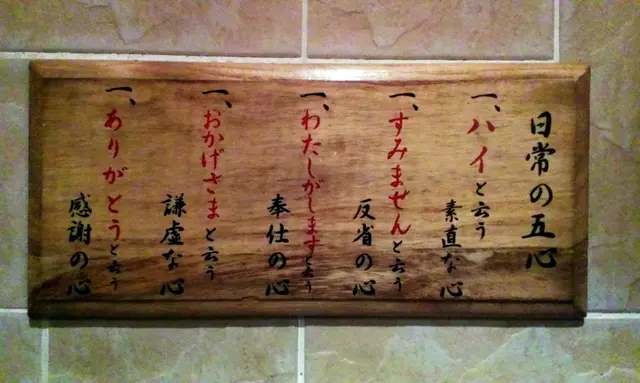 日常の五心
一、ハイと云う
素直な心
一、すみませんと云う
反省の心
一、わたしがしますと云う
奉仕の心
一、おかげさまと云う
謙虚な心
一、ありがとうと云う
感謝の心